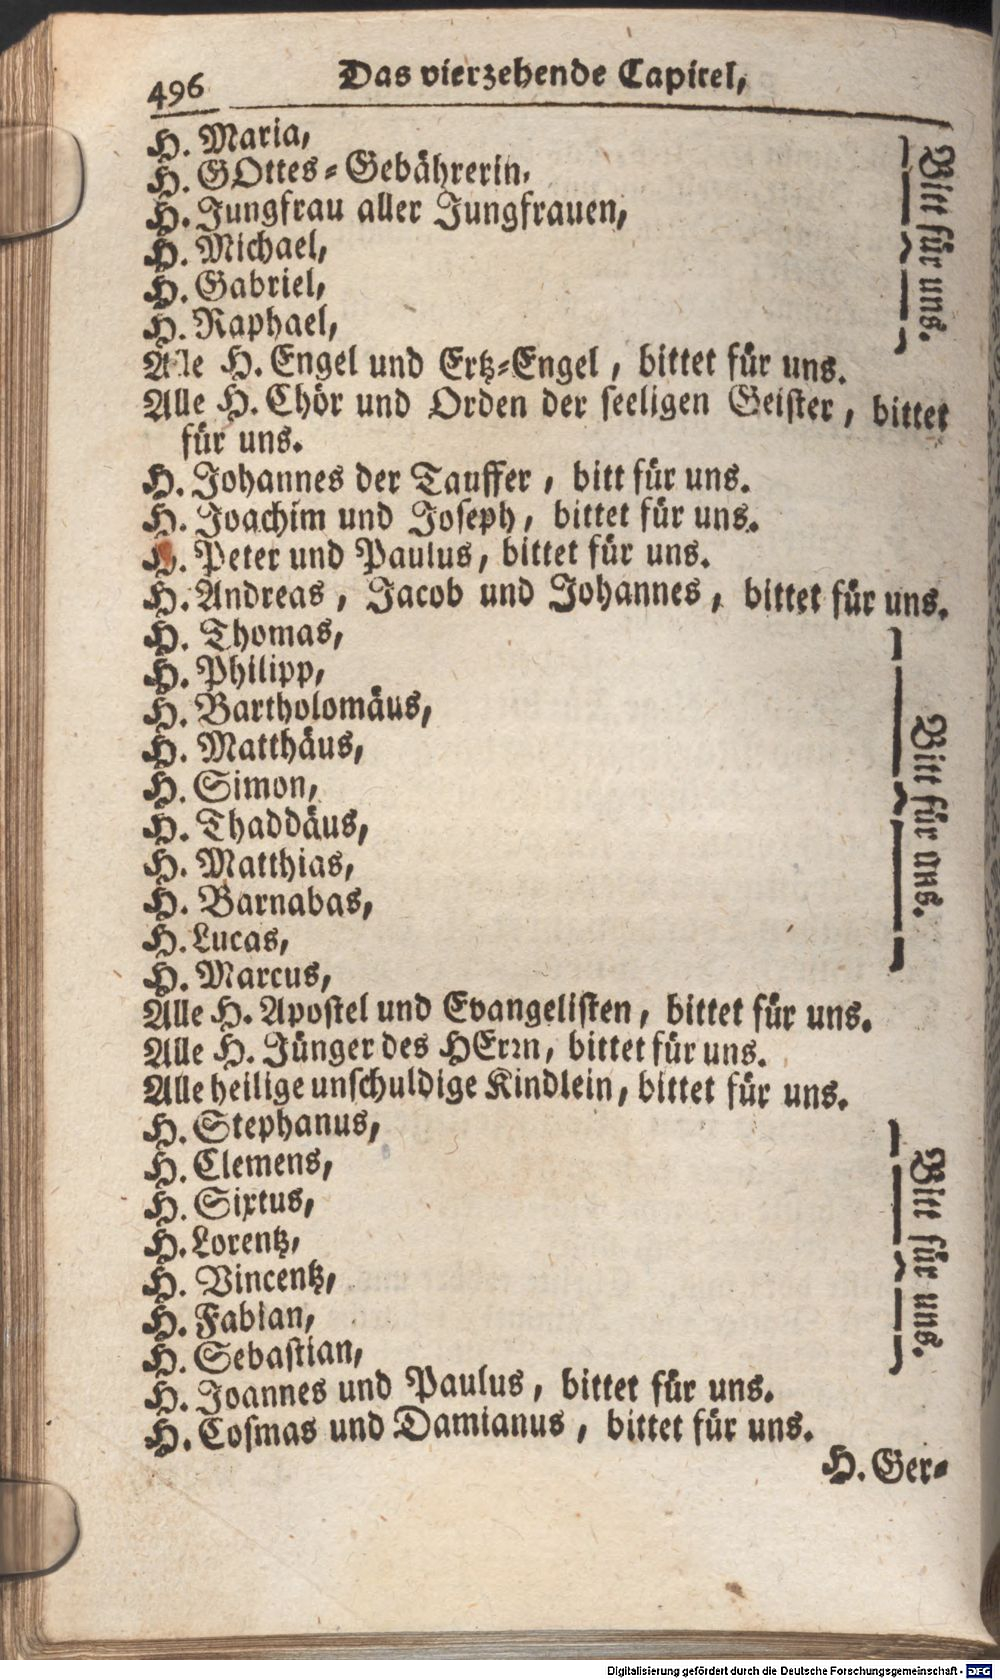 496
Das vierzehende Capitel,
H. Maria,
H. GOttes-Gebährerin,
H. Jungfrau aller Jungfrauen,
H. Michael,
H. Gabriel,
H. Raphael,
Bitt für uns.
Alle H. Engel und Ertz-Engel, bittet für uns.
Alle H. Chör und Orden der seeligen Geister, bittet
für uns.
H. Johannes der Tauffer, bitt für uns.
H. Joachim und Joseph, bittet für uns.
H. Peter und Paulus, bittet für uns.
H. Andreas, Jacob und Johannes, bittet für uns.
H. Thomas,
H. Philipp,
H. Bartholomäus,
H. Matthäus,
H. Simon,
H. Thaddäus,
H. Matthias,
H. Barnabas,
H. Lucas,
H. Marcus,
Bitt für uns.
Alle H. Apostel und Evangelisten, bittet für uns.
Alle H. Jünger des HErrn, bittet für uns.
Alle heilige unschuldige Kindlein, bittet für uns.
H. Stephanus,
H. Clemens,
H. Sixtus,
H. Lorentz,
H. Vincentz,
H. Fabian,
H. Sebastian,
Bitt für uns.
H. Joannes und Paulus, bittet für uns.
H. Cosmas und Damianus, bittet für uns.
H. Ger-
Digitalisierung gefördert durch die Deutsche Forschungsgemeinschaft - DFG